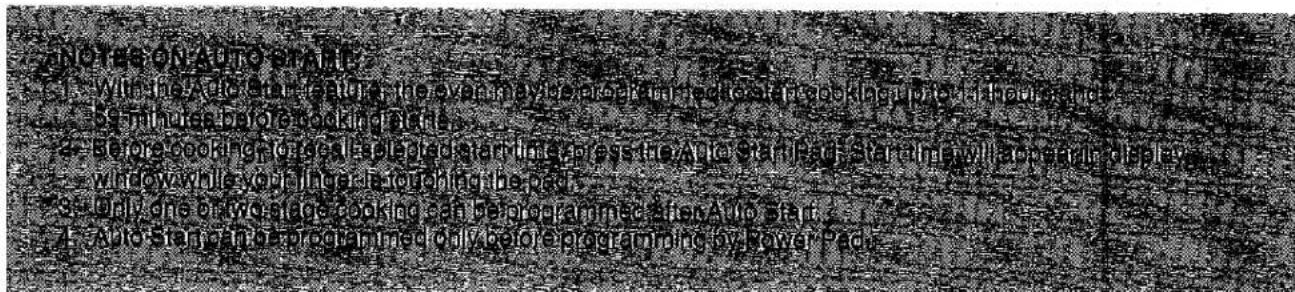 NOTES ON AUTO START:
1. With the Auto Start feature, the oven may be programmed to start cooking up to 11 hours and
59 minutes before cooking starts.
2. Before cooking, to recall selected start time, press the Auto Start Pad. Start time will appear in display
window while your finger is touching the pad.
3. Only one or two stage cooking can be programmed after Auto Start.
4. Auto Start can be programmed only before programming by Power Pad.